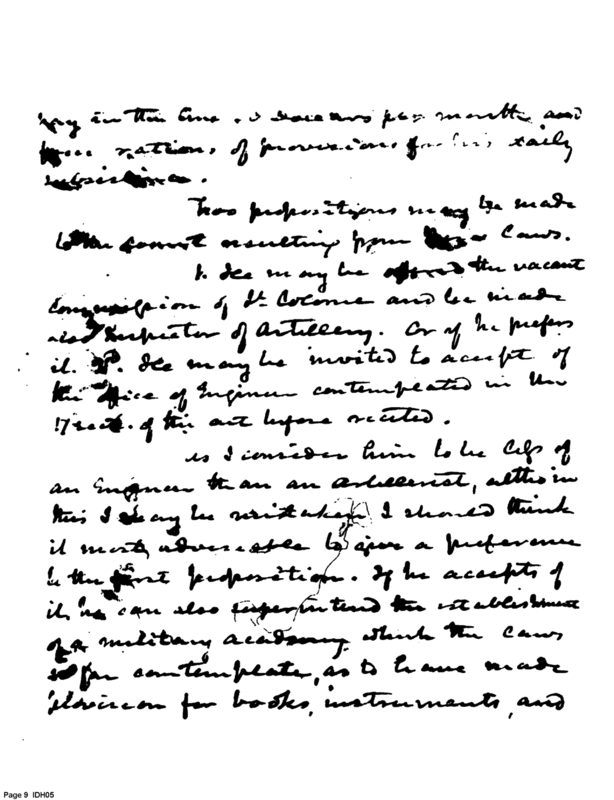 in the line dollars per month and
rations of provisions for his daily
subsistence.
Two propositions may be made
to the Count resulting from Laws.
1. He may be the vacant
of Lt Colonel and be made
also Inspector of Artillery. Or if he prefers
it. 2. He may be invited to accept of
the office of Engineer contemplated in the
17 sect. of the act before recited.
as I consider him to be less of
an Engineer than an Artillerist, altho in
this I may be mistaken I should think
it most adviseable to give a preference
to the first proposition. If he accepts of
it, he can also superintend the establishment
of a military academy which the Laws
so far contemplate, as to have made
provision for books, instruments, and
Page 9 IDH05